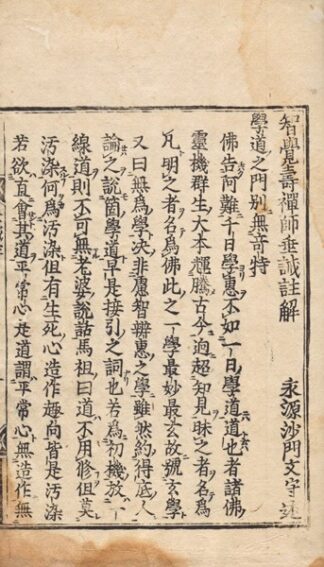 智覺壽禪師垂誡註解
永源沙門文守述
學道之門別無竒特
佛告阿難千日學惠不如一日學道道也者諸佛
靈機群生大本輝騰古今逈超知見昧之者名爲
凡明之者名爲佛此之一學最妙最玄故號玄學
又曰無爲學决非廣智辨惠之學雖然約得底人
論之說箇學道早是接引之詞也若爲初機放一
線道則不可無老婆說話馬祖曰道不用修但莫
汚染何爲汚染但有生死心造作趣向皆是汚染
若欲直會其道平常心是道謂平常心無造作無